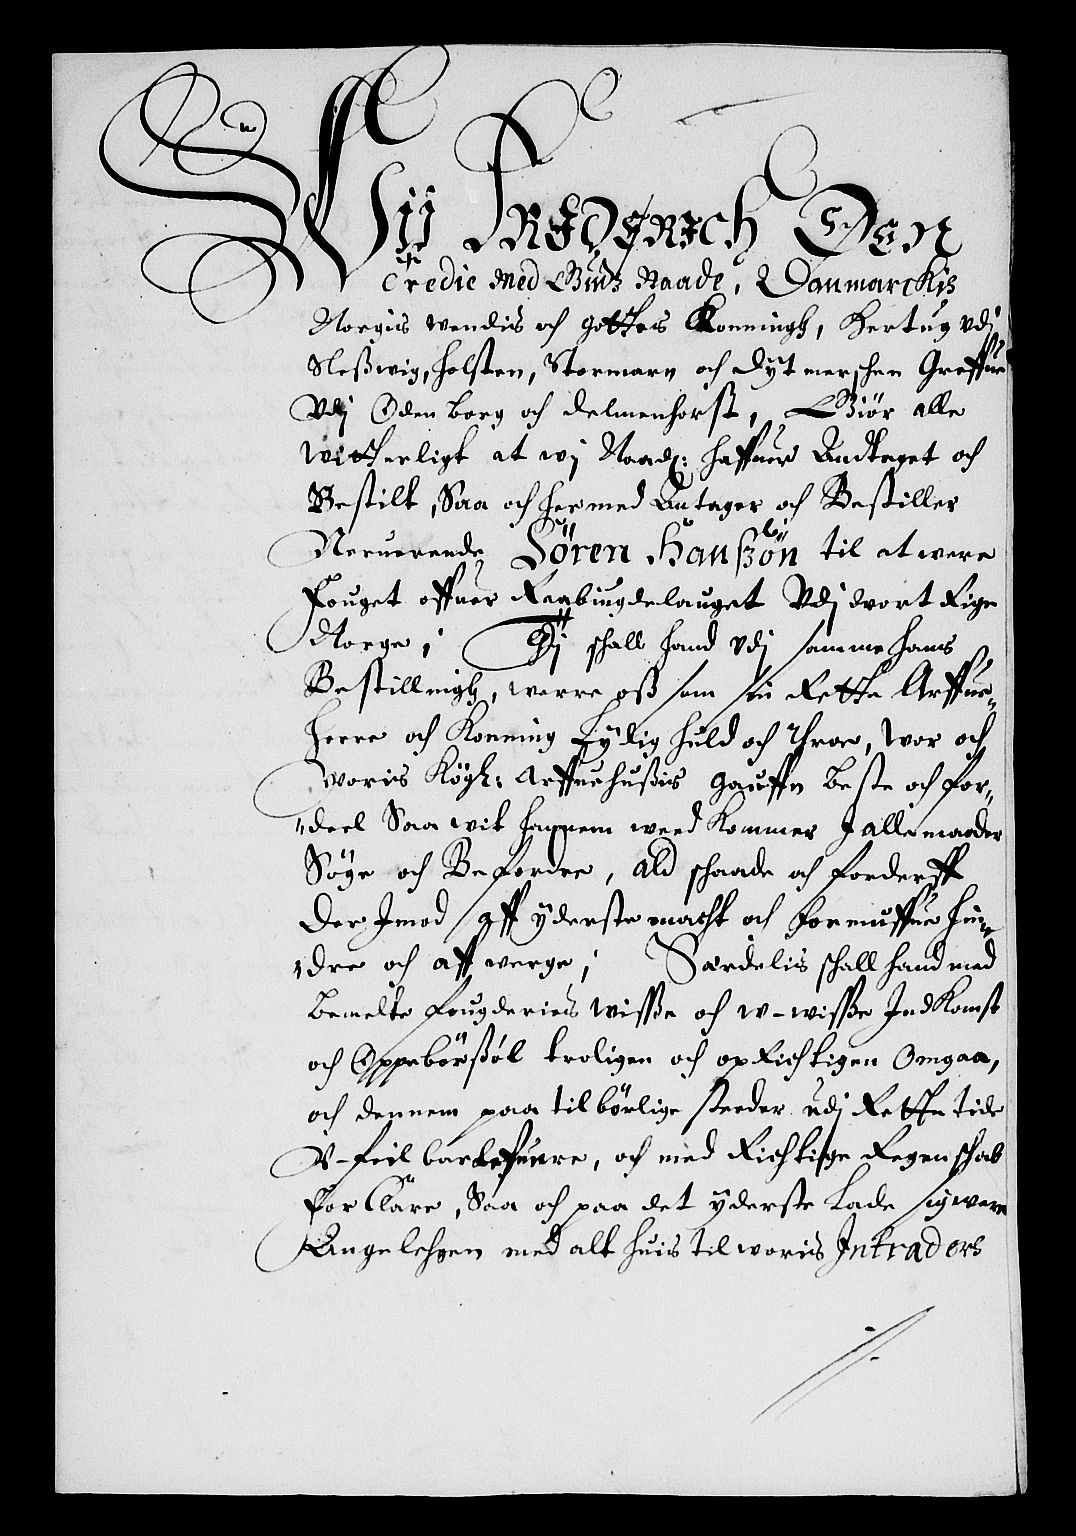 Wii Frederich Den
Tredie Med Gudz Naade, Danmarckis
Norgis wendis och gottes Konningh, Hertug vdj
Sleßwig, holsten, Stormarn och Dytmerschen Greffue
Vdj Oldenborg och Delmenhorst, Giör alle
witterligt at wj Naad: haffuer Andtaget och
Bestilt, Saa och hermed Antager och Bestiller
Neruerende Sören Hanßön til at were
Fouget offuer Raabiugdelauget Vdj vort Rige
Norge; Dj schall hand vdj samme hans
Bestillnigh, werre oß som sin Rette Arffue-
herre och Konning Lydig huld och throe, wor och
woris Kögl: Arffuehußis gauffn beste och for-
deel Saa wit hannem weed Kommer J alle maader
Söge och Befordre, Ald schaade och forderff
Der Jmod Aff yderste macht och formuffue hin-
dre och aff werge; Særdelis schall hand med
bemelte fougderies wisße och w-wisße Jndkomst
och Oppebörßöl troligen och opRichtigen Omgaa,
och dennem paa tilbörlige steeder udj Rette tide
V-feilbar lefuere, och med Richtige Regenschab
for Clare, Saa och paa det yderste Lade sig were
Angelehgen med alt huis til woris Intraders